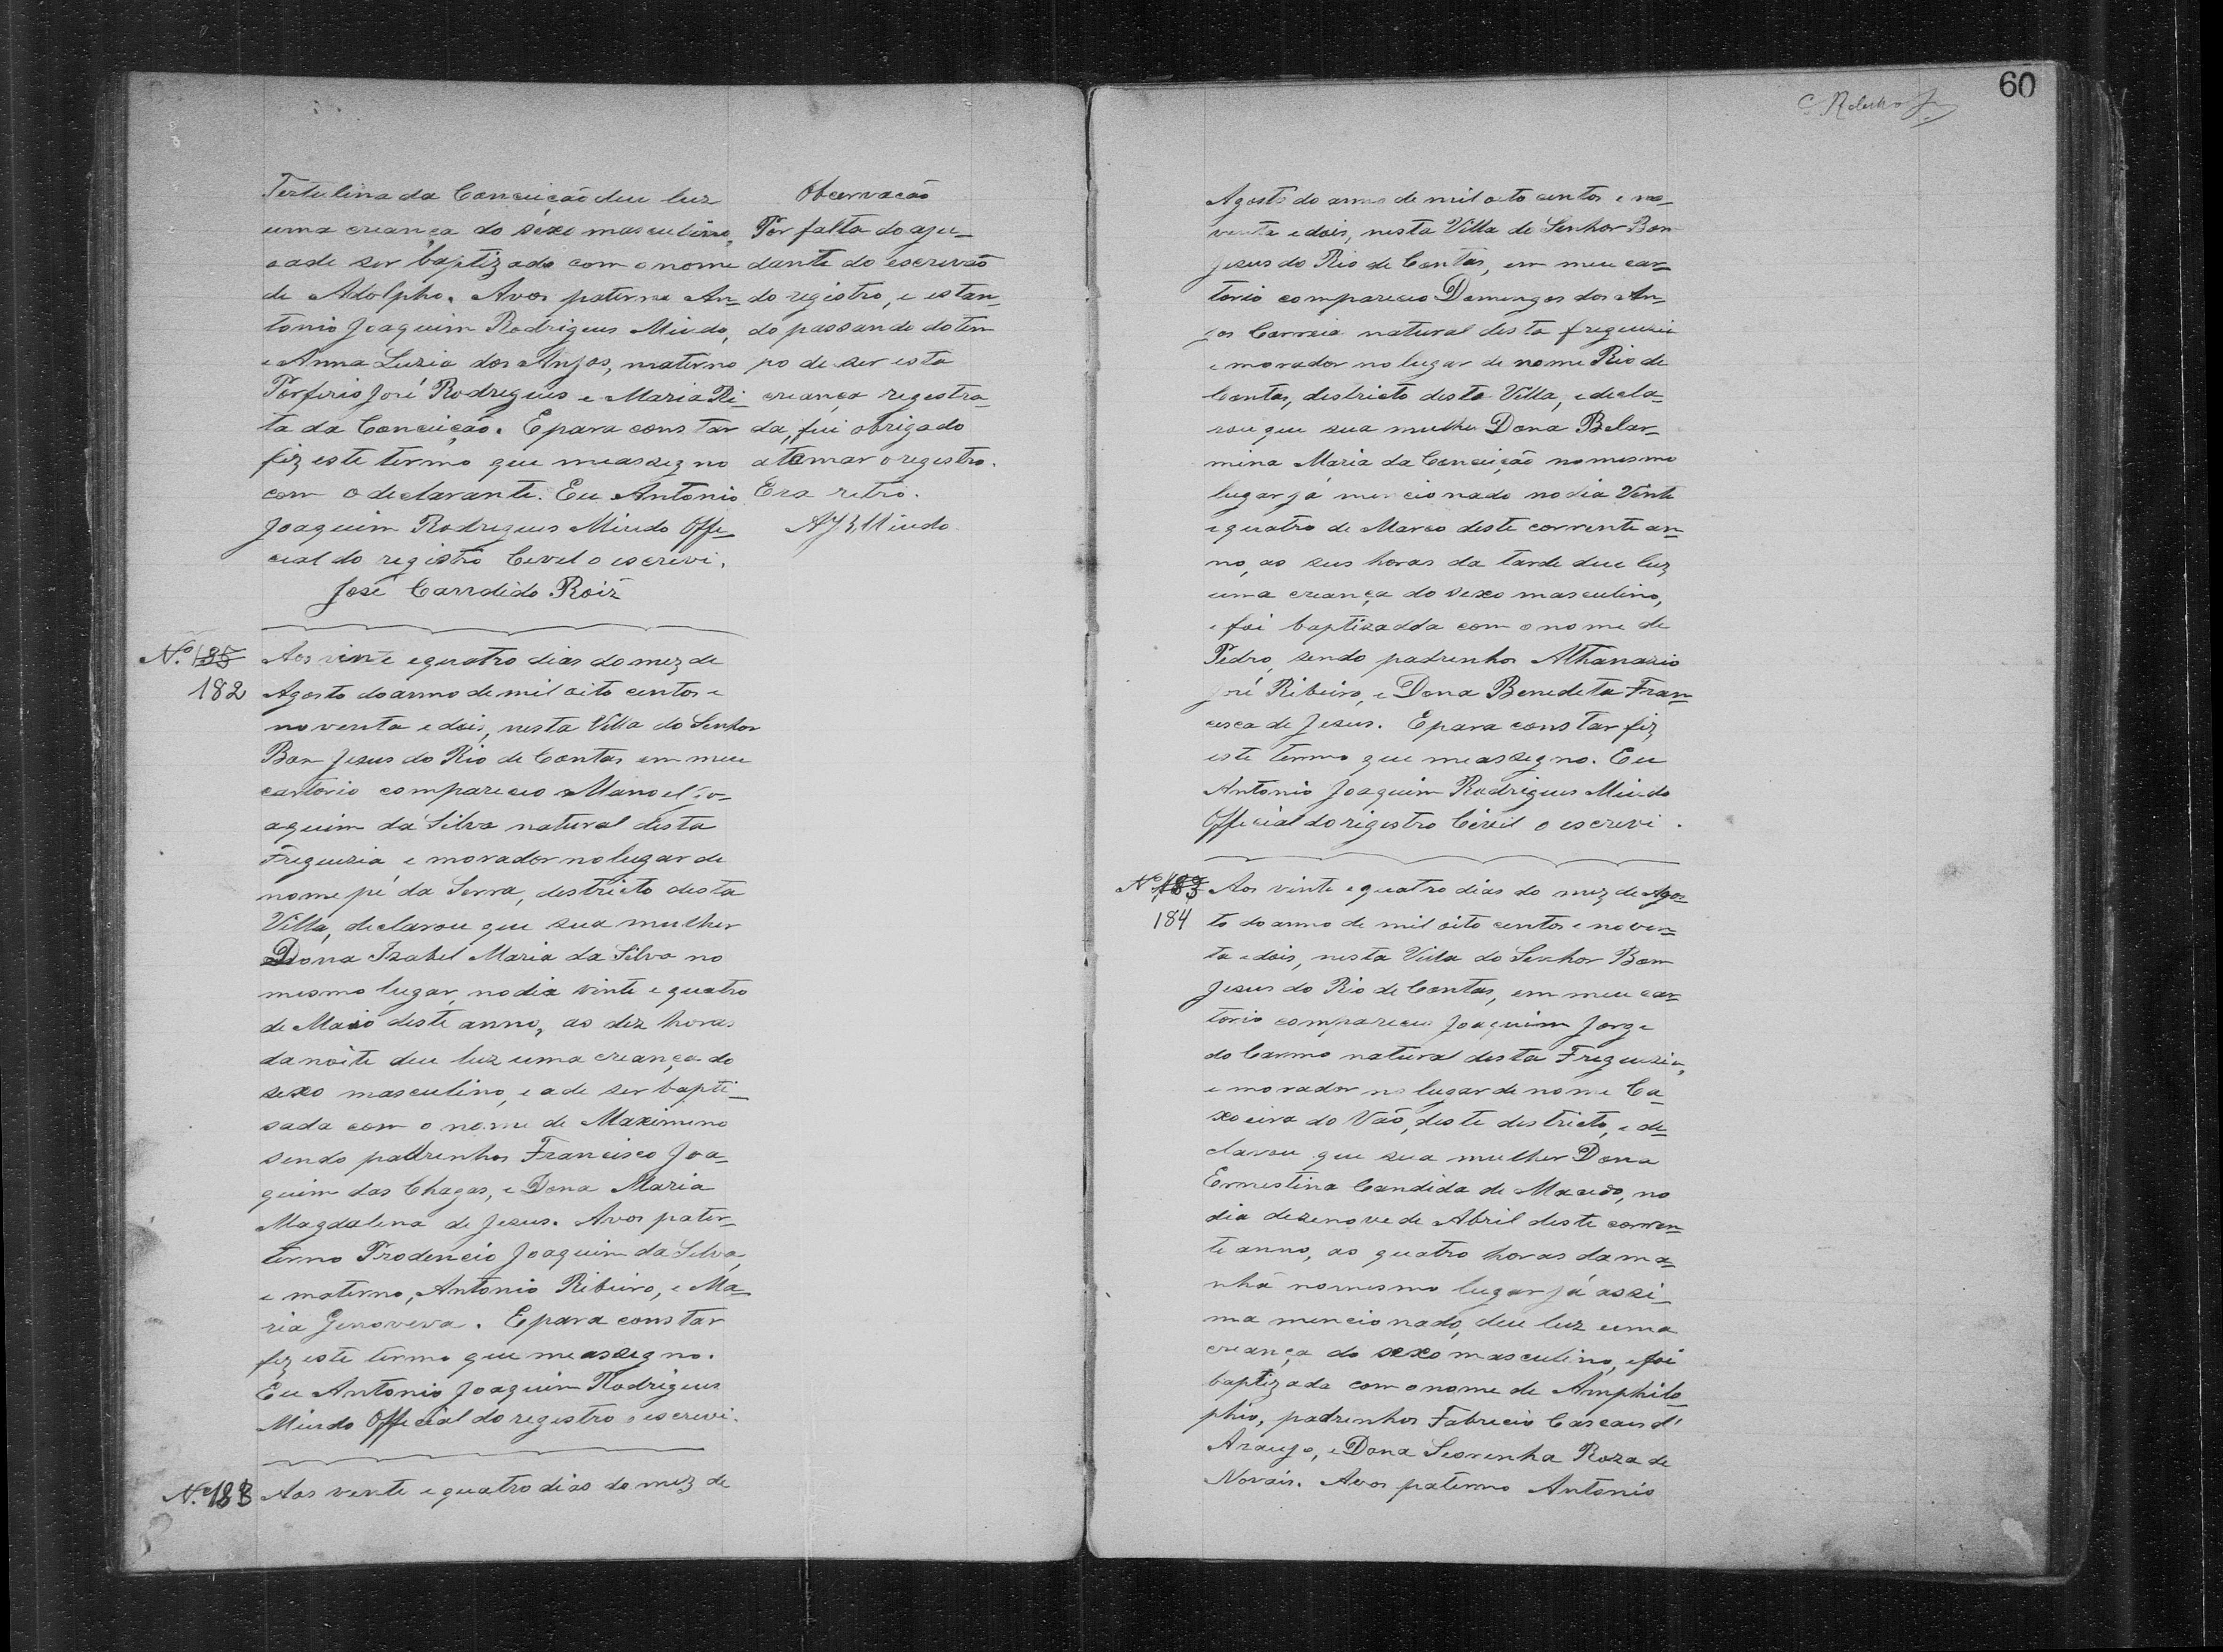 Tertulina da Conceição deu luz
uma creança do sexo masculino,
a ade ser baptizada com o nome
de Adolpho. Avos paterno An-
tonio Joaquim Rodrigues Miudo,
e Anna Luzia dos Anjos, materno
Porfirio José Rodrigues e Maria Ri-
ta da Conceição. E para constar
fiz este termo que meassigno
com o declarante. Eu Antonio
Joaquim Rodrigues Miudo Offi-
cial do registro Cevel o escrevi.
José Candido Roiz
Obcervacão
Por falta do aju-
dante do escrevão
do registro, e estan-
do passando do tem
po de ser esta
creança regestra-
da, fui obrigado
atomar o registro.
Era retro.
AJRMiudo
N.º 185
182
Aos vinte e quatro dias do mez de
Agosto do anno de mil oito centos e
noventa e dois, nesta Villa do Senhor
Bom Jesus do Rio de Contas em meu
cartorio compareceo Manoel Jo-
aquim da Silva natural desta
Freguezia e morador no lugar de
nome pé da Serra, destricto desta
Villa, declarou que sua mulher
Dona Izabel Maria da Silva no
mesmo lugar, no dia vinte e quatro
de Maio deste anno, as dez horas
da noite deu luz uma creança do
sexo masculino, e ade ser bapti-
sada com o nome de Maximino
sendo padrinhos Francisco Joa-
quim das Chagas, e Dona Maria
Magdalena de Jezus. Avos pater-
terno Prodencio Joaquim da Silva,
e materno, Antonio Ribeiro, e Ma-
ria Genoveva. E para constar
fiz este termo que meassegno.
Eu Antonio Joaquim Rodrigues
Miudo Official do registro o escrevi.
N.º 183
Aos vente e quatro dias do mez de
60
Agosto do anno de mil oito centos e no-
venta e dois, nesta Villa do Senhor Bom
Jesus do Rio de Contas, em meu car-
torio compareceo Domingos dos An-
jos Correia natural desta freguezia
e morador no lugar de nome Rio de
Contas, destricto desta Villa, e decla-
rou que sua mulher Dona Belar-
mina Maria da Conceição no mesmo
lugar já mencionado no dia Vinte
e quatro de Março deste corrente an-
no, as seis horas da tarde deu luz
uma creança do sexo masculino,
e foi baptisadda com o nome de
Pedro, sendo padrinhos Athanazio
José Ribeiro, e Dona Benedeta Fran-
cesca de Jesus. E para constar fiz
este termo que meassegno. Eu
Antonio Joaquim Rodrigues Miudo
Official do rigistro Civil o escrevi.
Nº 183
184
Aos vinte e quatro dias do mez de Agos-
to do anno de mil oito centos e noven-
ta e dois, nesta Villa do Senhor Bom
Jesus do Rio de Contas, em meu car-
torio compareceu Joaquim Jorge
do Carmo natural desta Freguezia,
e morador no lugar de nome Ca-
xoeira do Vão, deste destricto, e de-
clarou que sua mulher Dona
Ernestina Candida de Macedo, no
dia dezenove de Abril deste corren-
te anno, as quatro horas da ma-
nhã no mesmo lugar já assi-
ma mencionado, deu luz uma
creança do sexo masculino, e foi
baptizada com o nome de Amphilo-
phio, padrinhos Fabricio Cascais d'
Araujo, e Dona Rosa de
Novais. Avos paterno Antonio